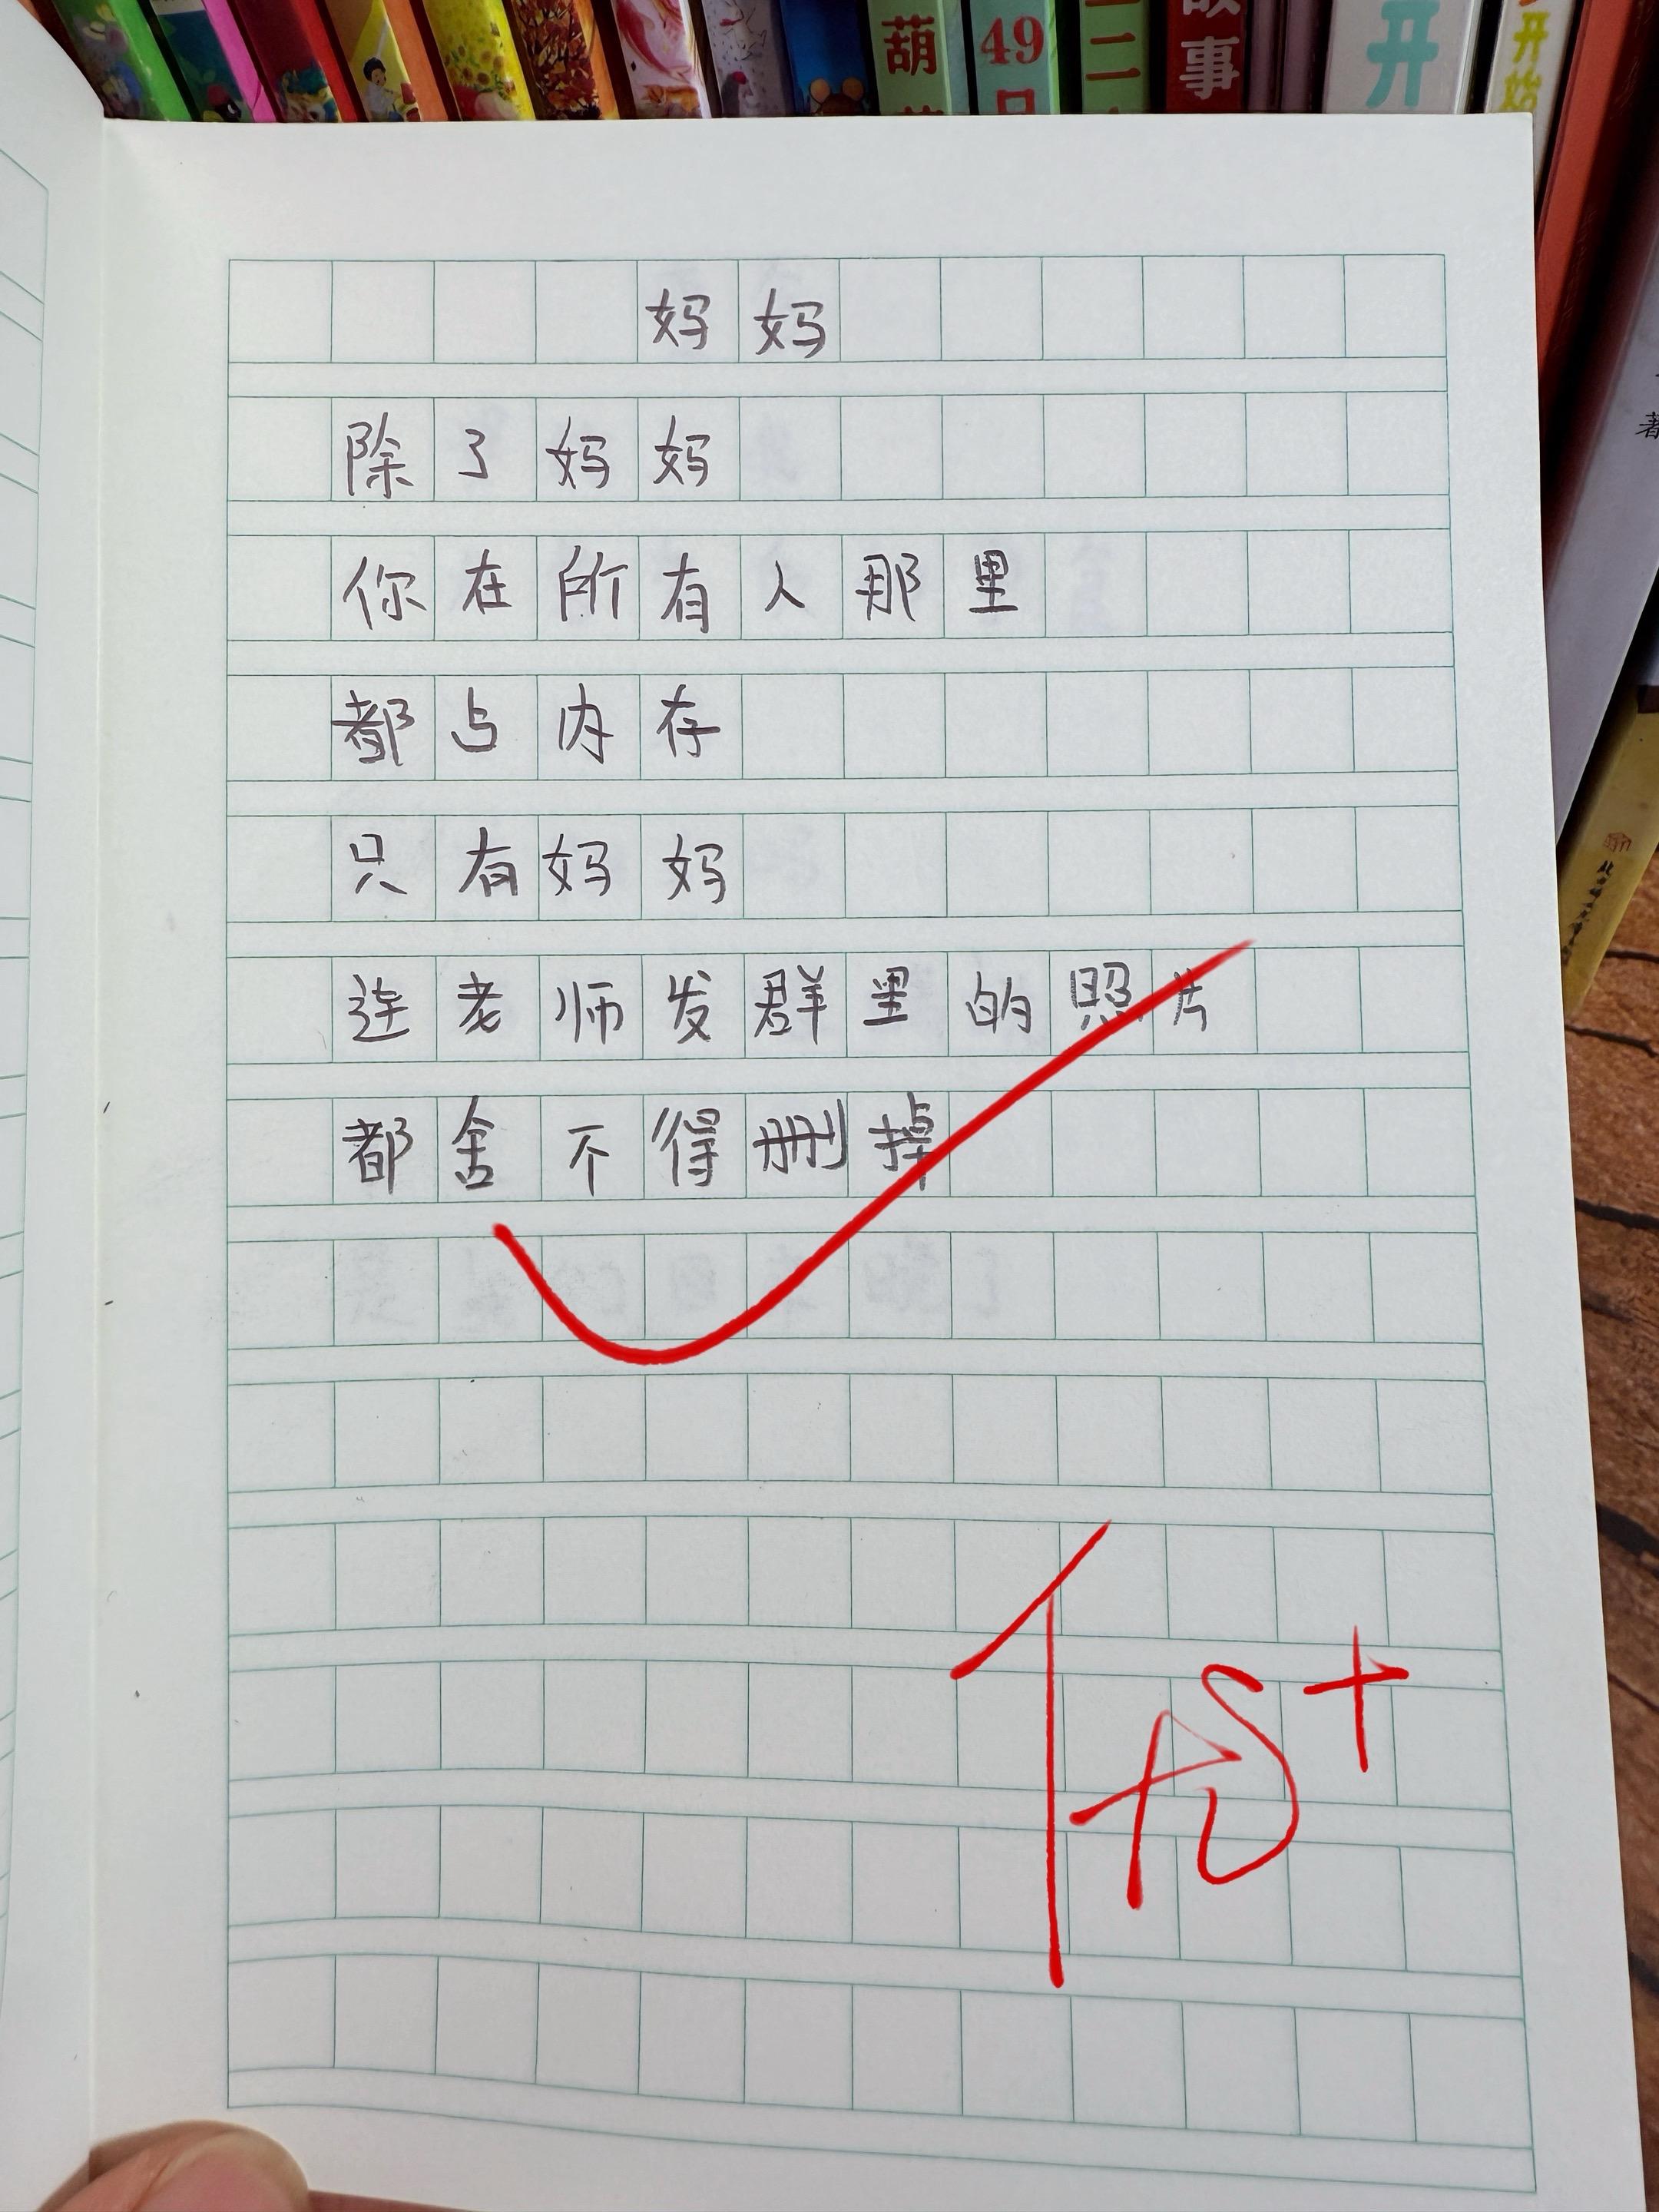 葫
49
二
故事
开
开始
著
妈妈
除了妈妈
你在所有人那里
都占内存
只有妈妈
连老师发群里的照片
都舍不得删掉
优+